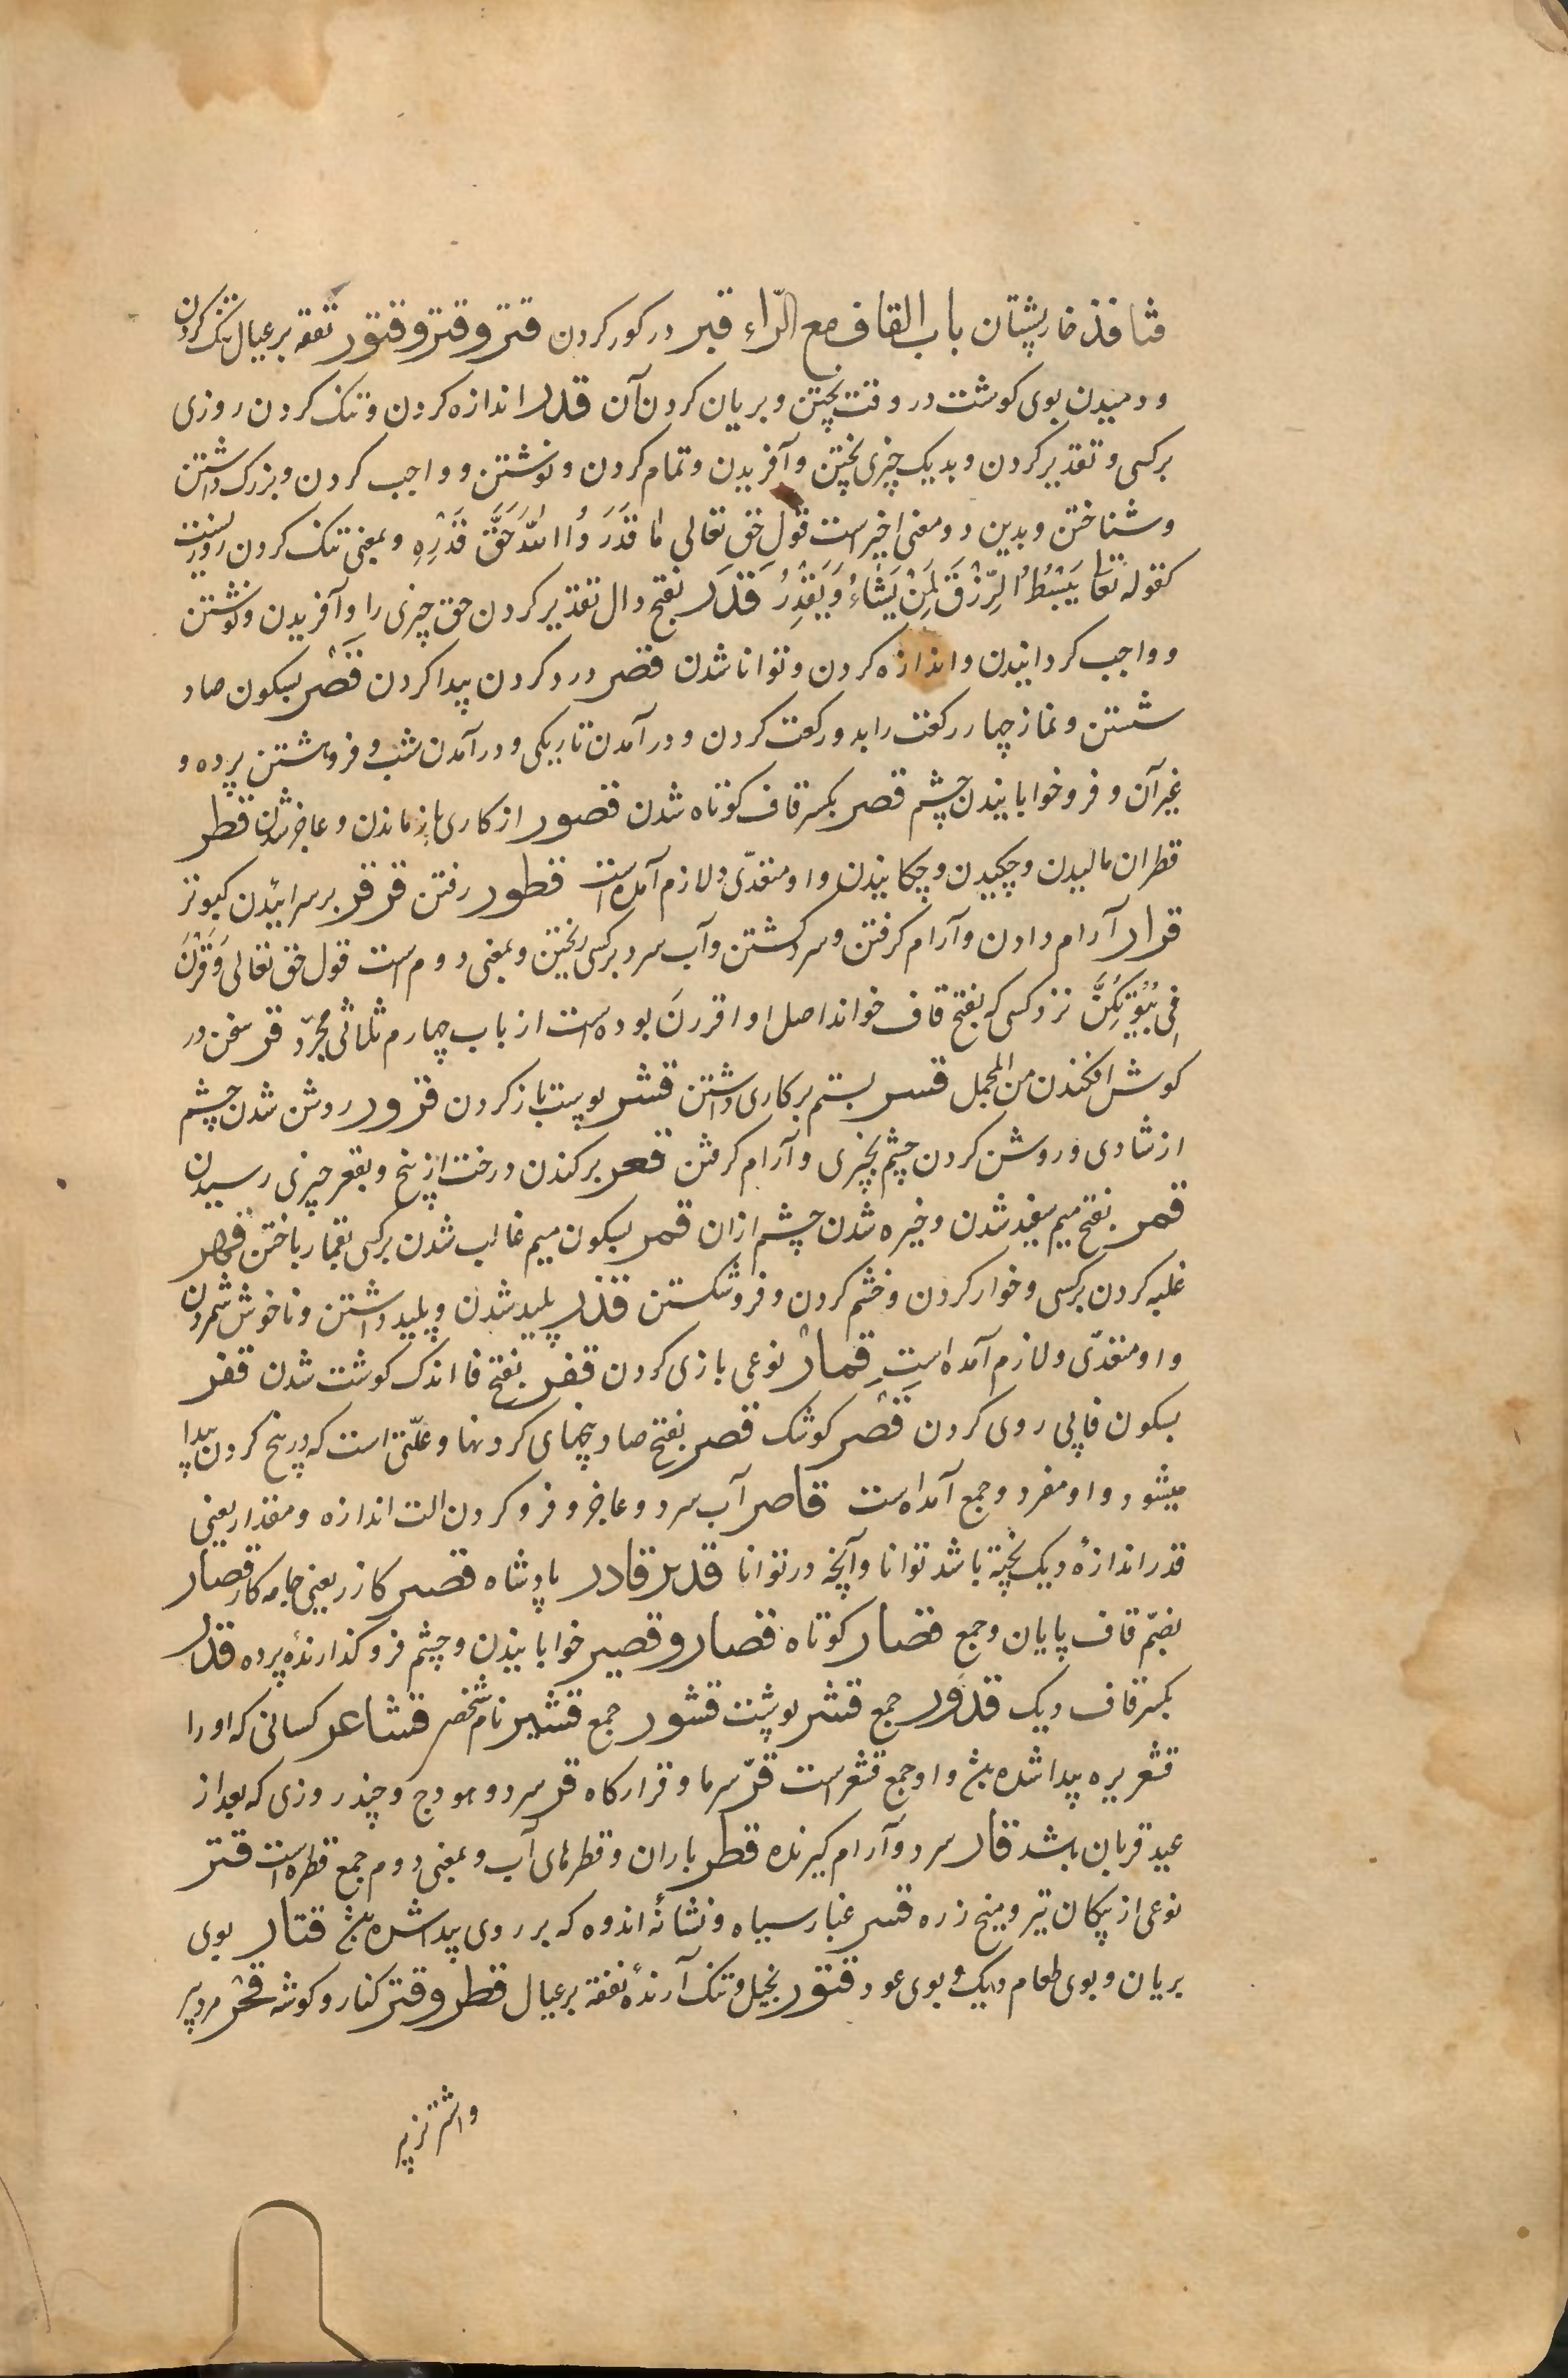 قنافذ خارپشتان باب القاف مع الرّاء قبر در کور کردن قتر و قتر و قتور نفقه بر عیال تنک کردن
و دمیدن بوی کوشت در وقت پختن و بریان کردن آن قدر اندازه کردن و تنک کردن روزی
بر کسی و تقدیر کردن و بدیک چیزی پختن و آفریدن و تمام کردن و نوشتن و واجب کردن و بزرک داشتن
و شناختن و بدین دو معنی اخیر است قول حق تعالی مَا قَدَرُوا اللّٰهَ حَقَّ قَدْرِهِ و بمعنی تنک کردن روزیست
کقوله تعا یَبْسُطُ الرِّزْقَ لِمَنْ یَشَاءُ وَیَقْدِرُ قَدَر بفتح دال تقدیر کردن حق چیزی را و آفریدن و نوشتن
و واجب کردانیدن و اندازه کردن و توانا شدن قصر درد کردن پیدا کردن قَصْر بسکون صاد
شستن و نماز چهار رکعت را بدو رکعت کردن و در آمدن تاریکی و در آمدن شب و فروهشتن پرده و
غیر آن و فرو خوابانیدن چشم قصر بکسر قاف کوتاه شدن قصور از کاری باز ماندن و عاجز شدن قطر
قطران مالیدن و چکیدن و چکانیدن و او متعدّی و لازم آمده است قطور رفتن قرقر بر سرائیدن کبوتر
قرار آرام دادن و آرام کرفتن و سرد کشتن و آب سرد بر کسی ریختن و بمعنی دوم است قول حق تعالی وَقَرْنَ
فِی بُیُوتِکُنَّ نزد کسی که بفتح قاف خواند اصل او اقررنَ بوده است از باب چهارم ثلاثی مجرّد قر سخن در
کوش افکندن من المجمل قسر بستم بر کاری داشتن قشر پوست باز کردن قرور روشن شدن چشم
از شادی و روشن کردن چشم بچیزی و آرام کرفتن قعر برکندن درخت از بیخ و بقعر چیزی رسیدن
قمر بفتح میم سفید شدن و خیره شدن چشم از ان قمر بسکون میم غالب شدن بر کسی بقمار باختن قهر
غلبه کردن بر کسی و خوار کردن و خشم کردن و فرو شکستن قذر پلید شدن و پلید داشتن و ناخوش شمردن
و او متعدّی و لازم آمده است قِمار نوعی بازی کردن قفر بفتح فا اندک کوشت شدن قفر
بسکون فا پی روی کردن قَصْر کوشک قصر بفتح صاد بیخهای کردنها و علّتی است که در بیخ کردن پیدا
میشود و او مفرد و جمع آمده است قاصر آب سرد و عاجز و فرو کردن الت اندازه و مقدار یعنی
قدر اندازهٔ دیک پخته باشد توانا و آنچه در توانا قدیر قادر پادشاه قصیر کازر یعنی جامه کار قصار
بضمّ قاف پایان و جمع قصار کوتاه قصار و قصیر خوابانیدن و چشم فرو کذارندهٔ پرده قدر
بکسر قاف دیک قدور جمع قشر پوشت قشور جمع قشیر نام شخصر قشاعر کسانی که او را
قشعریره پیدا شده باشد و او جمع قشعر است قرّ سرما و قرارکاه قر سرد و هودج و چند روزی که بعد از
عید قربان باشد قار سرد و آرام کیرنده قطر باران و قطرهای آب و بمعنی دوم جمع قطره است قتر
نوعی از پیکان تیر و میخ زره قتر غبار سیاه و نشانهٔ اندوه که بر روی پیدا شده باشد قتار بوی
بریان و بوی طعام دیک و بوی عود قتور بخیل و تنک آرندهٔ نفقه بر عیال قطر و قتر کنار و کوشه قحر مرد پیر
و اشتر پیر